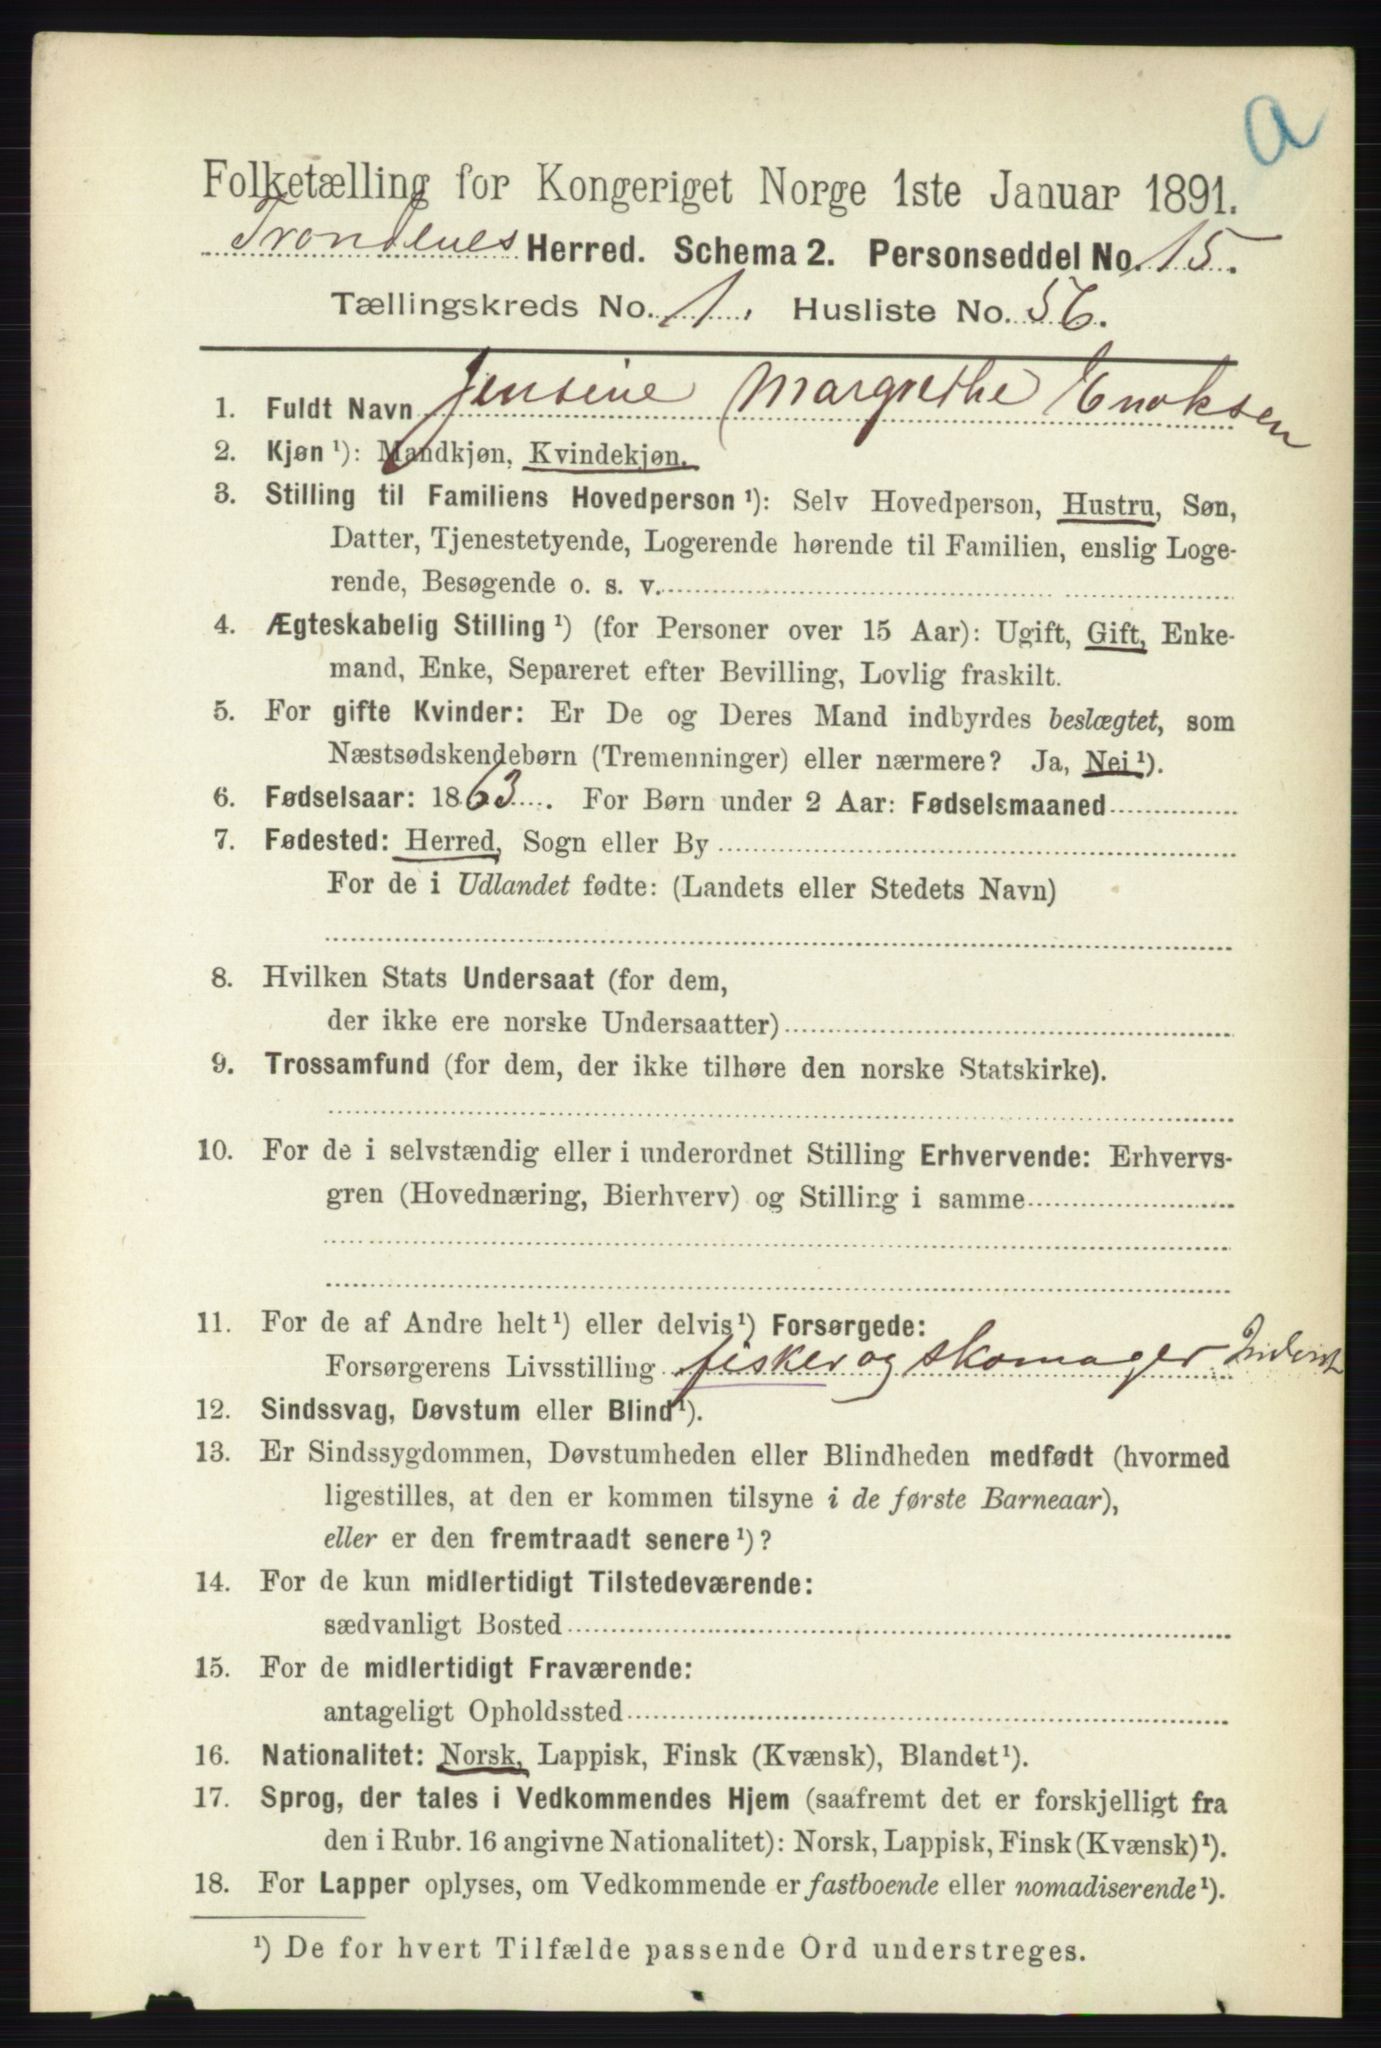 a
Folketælling for Kongeriget Norge 1ste Januar 1891.
Trondenes Herred. Schema 2. Personseddel No. 15.
Tællingskreds No. 1. Husliste No. 56.
1. Fuldt Navn Jensine Margrethe Enoksen
2. Kjøn ¹): Mandkjøn, Kvindekjøn.
3. Stilling til Familiens Hovedperson ¹): Selv Hovedperson, Hustru, Søn,
Datter, Tjenestetyende, Logerende hørende til Familien, enslig Loge-
rende, Besøgende o. s. v.
4. Ægteskabelig Stilling ¹) (for Personer over 15 Aar): Ugift, Gift, Enke-
mand, Enke, Separeret efter Bevilling, Lovlig fraskilt.
5. For gifte Kvinder: Er De og Deres Mand indbyrdes beslægtet, som
Næstsødskendebørn (Tremenninger) eller nærmere? Ja, Nei ¹).
6. Fødselsaar: 1863. For Børn under 2 Aar: Fødselsmaaned
7. Fødested: Herred, Sogn eller By
For de i Udlandet fødte: (Landets eller Stedets Navn)
8. Hvilken Stats Undersaat (for dem,
der ikke ere norske Undersaatter)
9. Trossamfund (for dem, der ikke tilhøre den norske Statskirke).
10. For de i selvstændig eller i underordnet Stilling Erhvervende: Erhvervs-
gren (Hovednæring, Bierhverv) og Stilling i samme
11. For de af Andre helt ¹) eller delvis ¹) Forsørgede:
Forsørgerens Livsstilling fisker og skomager
12. Sindssvag, Døvstum eller Blind ¹).
13. Er Sindssygdommen, Døvstumheden eller Blindheden medfødt (hvormed
ligestilles, at den er kommen tilsyne i de første Barneaar),
eller er den fremtraadt senere ¹)?
14. For de kun midlertidigt Tilstedeværende:
sædvanligt Bosted
15. For de midlertidigt Fraværende:
antageligt Opholdssted
16. Nationalitet: Norsk, Lappisk, Finsk (Kvænsk), Blandet ¹).
17. Sprog, der tales i Vedkommendes Hjem (saafremt det er forskjelligt fra
den i Rubr. 16 angivne Nationalitet): Norsk, Lappisk, Finsk (Kvænsk) ¹).
18. For Lapper oplyses, om Vedkommende er fastboende eller nomadiserende ¹).
¹) De for hvert Tilfælde passende Ord understreges.